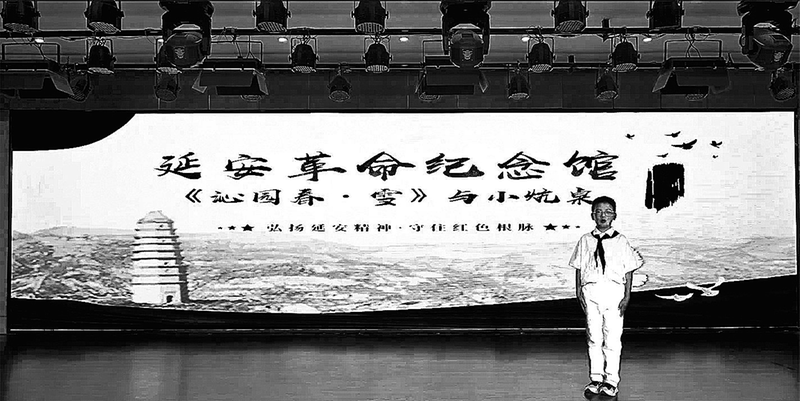 延安革命纪念馆
《沁园春·雪》与小炕桌
弘扬延安精神·守住红色根脉